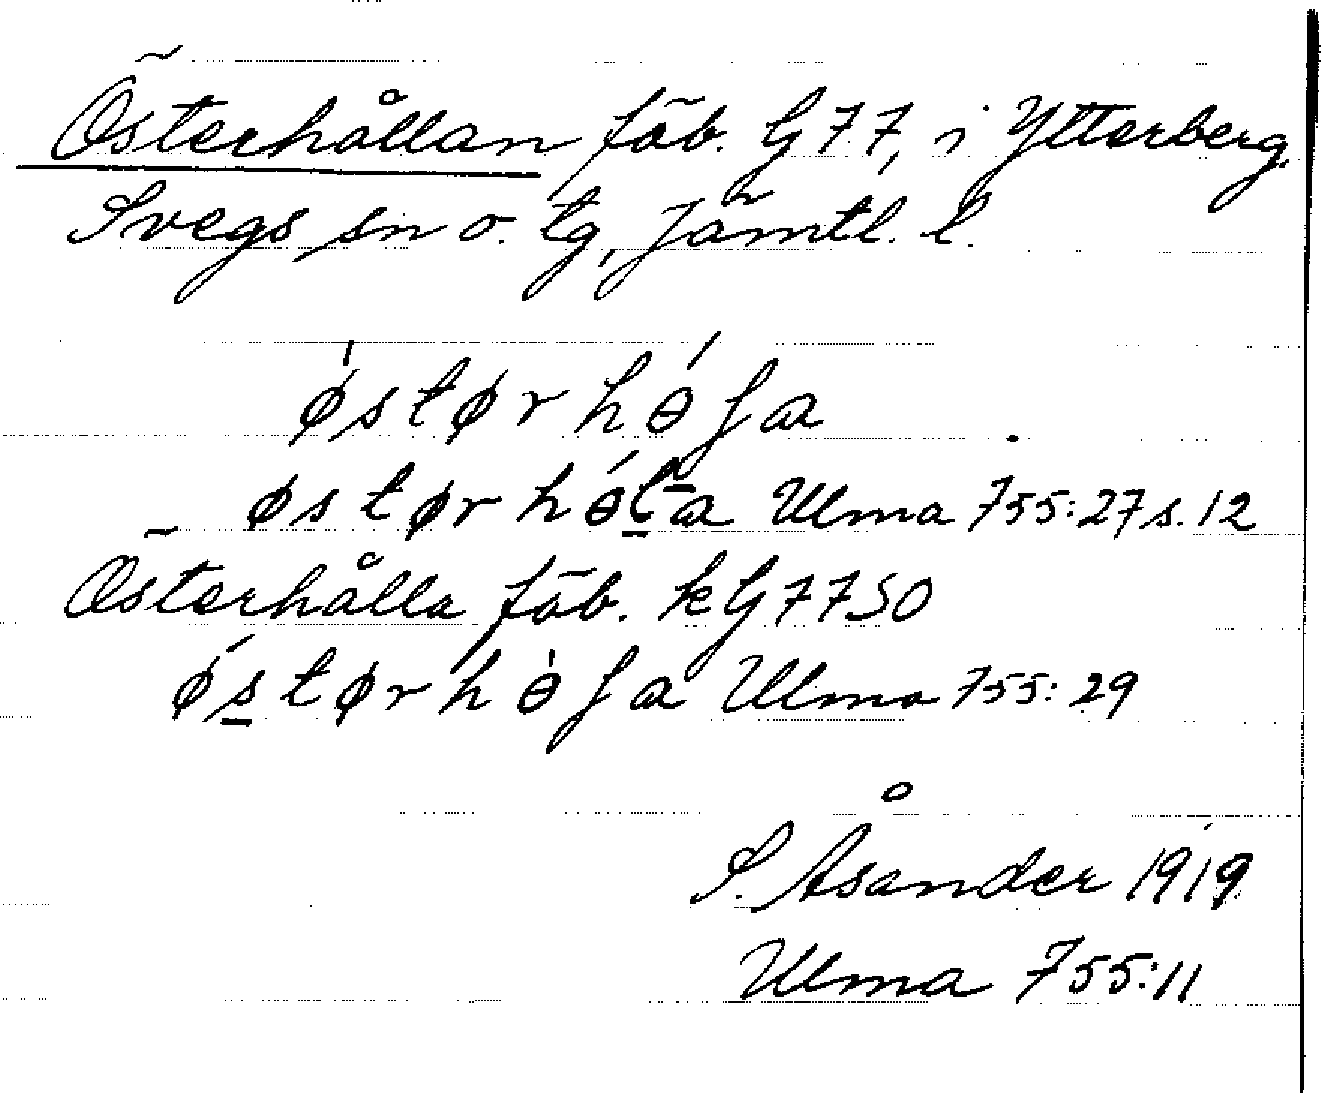 Österhållan fäb. G77, i Ytterberg
Svegs sn o. tg, Jämtl. l.
østørhɵʃa
østørhɵla Ulma 755:27 s. 12
Österhålla fäb. kG7750
østørhɵʃa Ulma 755:29
S. Åsander 1919
Ulma 755:11